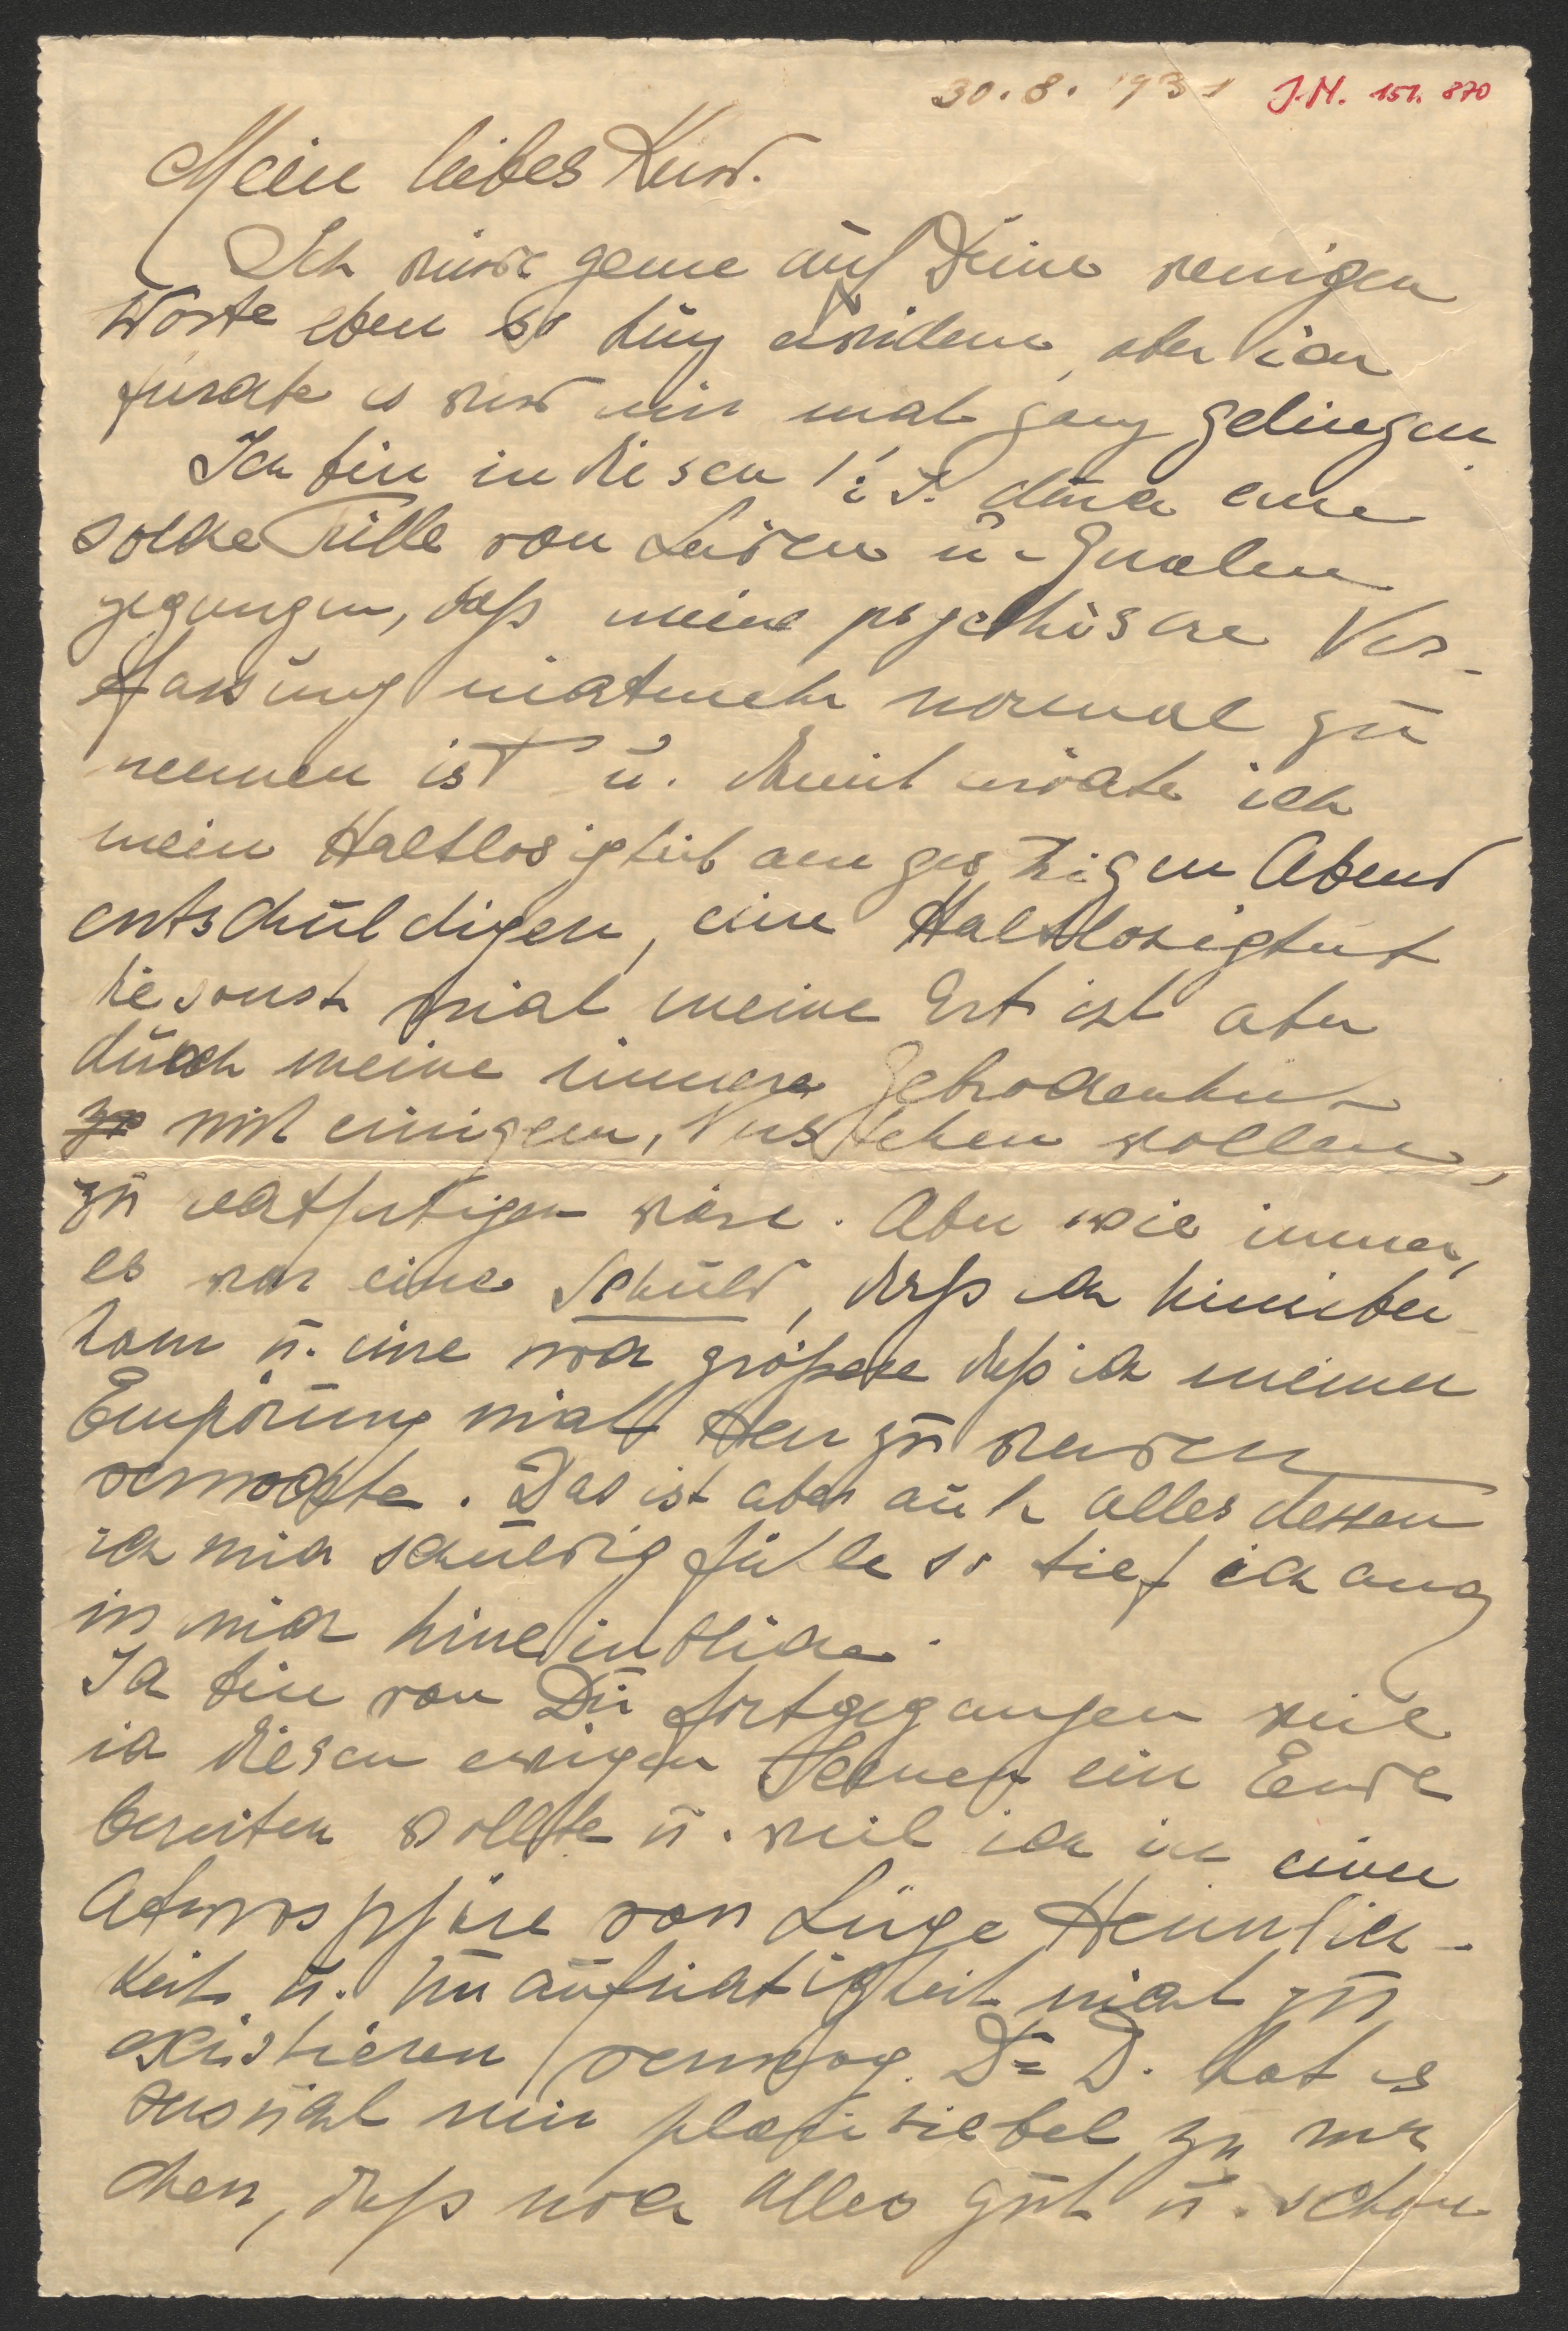 30. 8. 1931 J.N. 151.870
Mein liebes Kind.
Ich würde gerne auf Deine wenigen
Worte eben so kurz erwidern, aber ich
fürchte es wird mir nicht ganz gelingen.
Ich bin in diesen 1½ J. durch eine
solche Fülle von Leiden u. Qualen
gegangen, daß meine psychische Ver-
fassung nicht mehr normal zu
nennen ist u. damit möchte ich
mein Haltlosigkeit am gestrigen Abend
entschuldigen, eine Haltlosigkeit
die sonst nicht meine Art ist aber
durch meine innere Gebrochenheit
mit einigem, Verstehen wollen,
zu rechtfertigen wäre. Aber wie immer,
es war eine Schuld, daß ich hinüber
kam u. eine noch größere daß ich meiner
Empörung nicht Herr zu werden
vermochte. Das ist aber auch alles dessen
ich mich schuldig fühle so tief ich auch
in mich hineinblicke.
Ich bin von Dir fortgegangen weil
ich diesen ewigen Scenen ein Ende
bereiten wollte u. weil ich in einer
Atmospfäre von Lüge Heimlich-
keit u. Unaufrichtigkeit nicht zu
existieren vermag. Dr D. hat es
versucht mir plausiebel zu ma
chen, daß noch alles gut u. schön